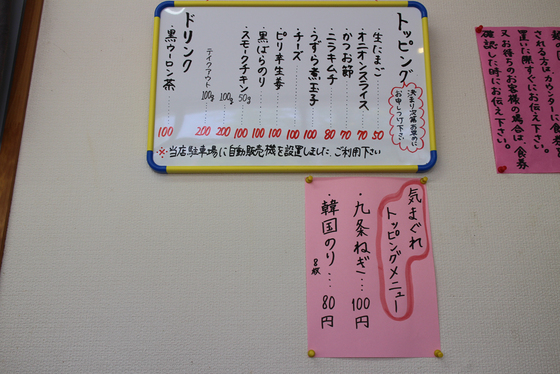 トッピング
決まり次第お早めに
お申しつけ下さい
・生たまご 50
・オニオンスライス 70
・かつお節 70
・ニラキムチ 80
・うずら煮玉子 100
・チーズ 100
・ピリ辛生姜 100
・黒ばらのり 100
・スモークチキン 50g 100
100g 200
テイクアウト 100g 200
ドリンク
・黒ウーロン茶 100
※当店駐車場に自動販売機を設置しました。ご利用下さい
気まぐれ
トッピングメニュー
・九条ねぎ…100円
・韓国のり…80円
8枚
される方は、カウンターに食券
置いた際すぐにお伝え下さい。
又お待ちのお客様の場合は、食券
確認した時にお伝え下さい。